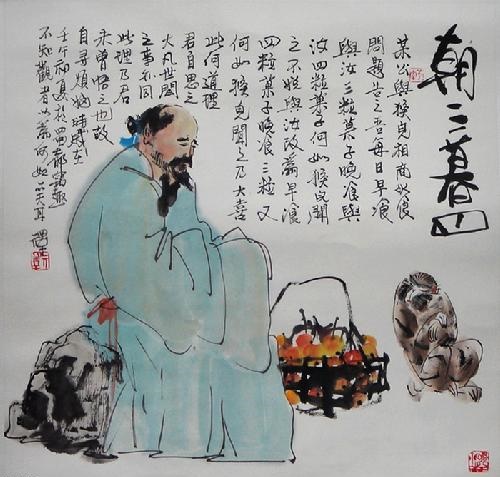 朝三暮四
某公與猴兒相商吃食
問題告之吾每日早飡
與汝三粒菓子晚飡與
汝四粒菓子何如猴兒聞
之不悅與汝改為早飡
四粒菓子晚飡三粒又
何如猴兒聞之乃大喜
此何道理
君自思之
大凡世間
之事多同
此理乃君
未曾悟之也故
自尋煩惱
壬午初夏於蜀都
不知觀者以為何如